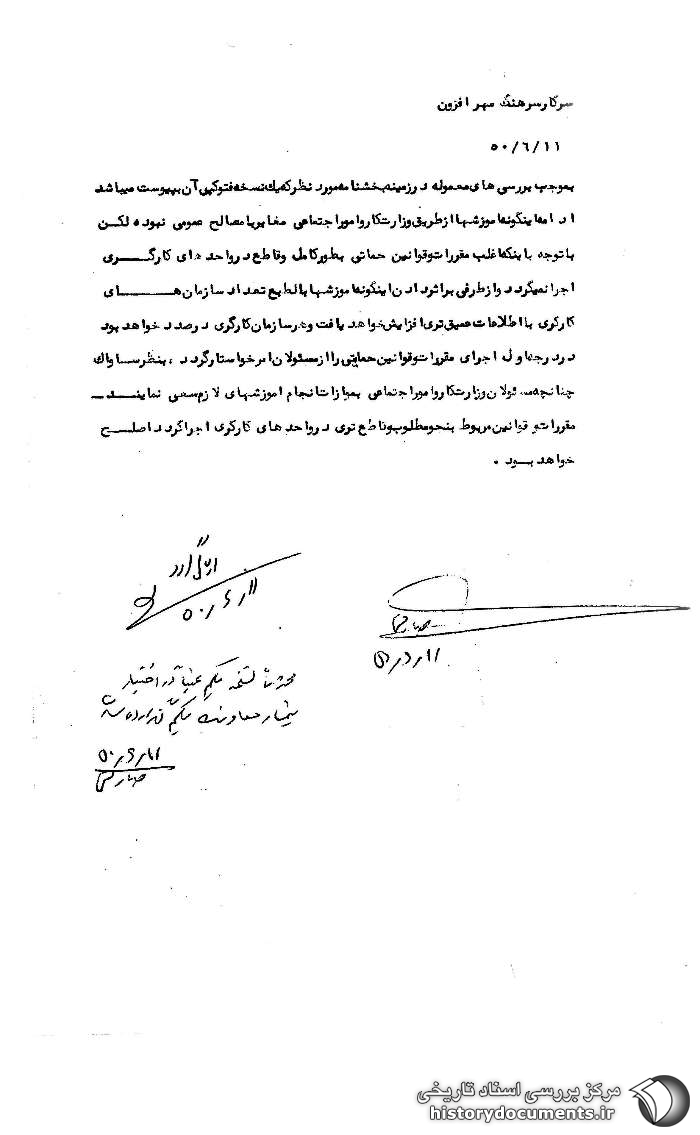 سرکار سرهنگ مهر افزون
۵۰/۶/۱۱
بموجب بررسی های معموله در زمینه بخشنامه مورد نظر که یک نسخه فتوکپی آن به پیوست میباشد
ادامه اینگونه آموزشها از طریق وزارت کار و امور اجتماعی مغایر با مصالح عمومی نبوده لکن
با توجه باینکه اغلب مقررات و قوانین حمایتی بطور کامل و قاطع در واحد های کارگری
اجرا نمیگردد و از طرفی بر اثر دادن اینگونه آموزشها بالطبع تعداد سازمان های
کارگری با اطلاعات عمیق تری افزایش خواهد یافت و هر سازمان کارگری درصدد خواهد بود
در درجه اول اجرای مقررات و قوانین حمایتی را از مسئولان امر خواستار گردد ، بنظر ساواک
چنانچه مسئولان وزارت کار و امور اجتماعی بموازات انجام آموزشهای لازم سعی نمایند
مقررات و قوانین مربوط بنحو مطلوب و قاطع تری در واحد های کارگری اجرا گردد اصلح
خواهد بود .
۵۰/۶/۱۱
نسخه یکم عینا در اختیار
۵۰/۶/۱۱
مرکز بررسی اسناد تاریخی
historydocuments.ir